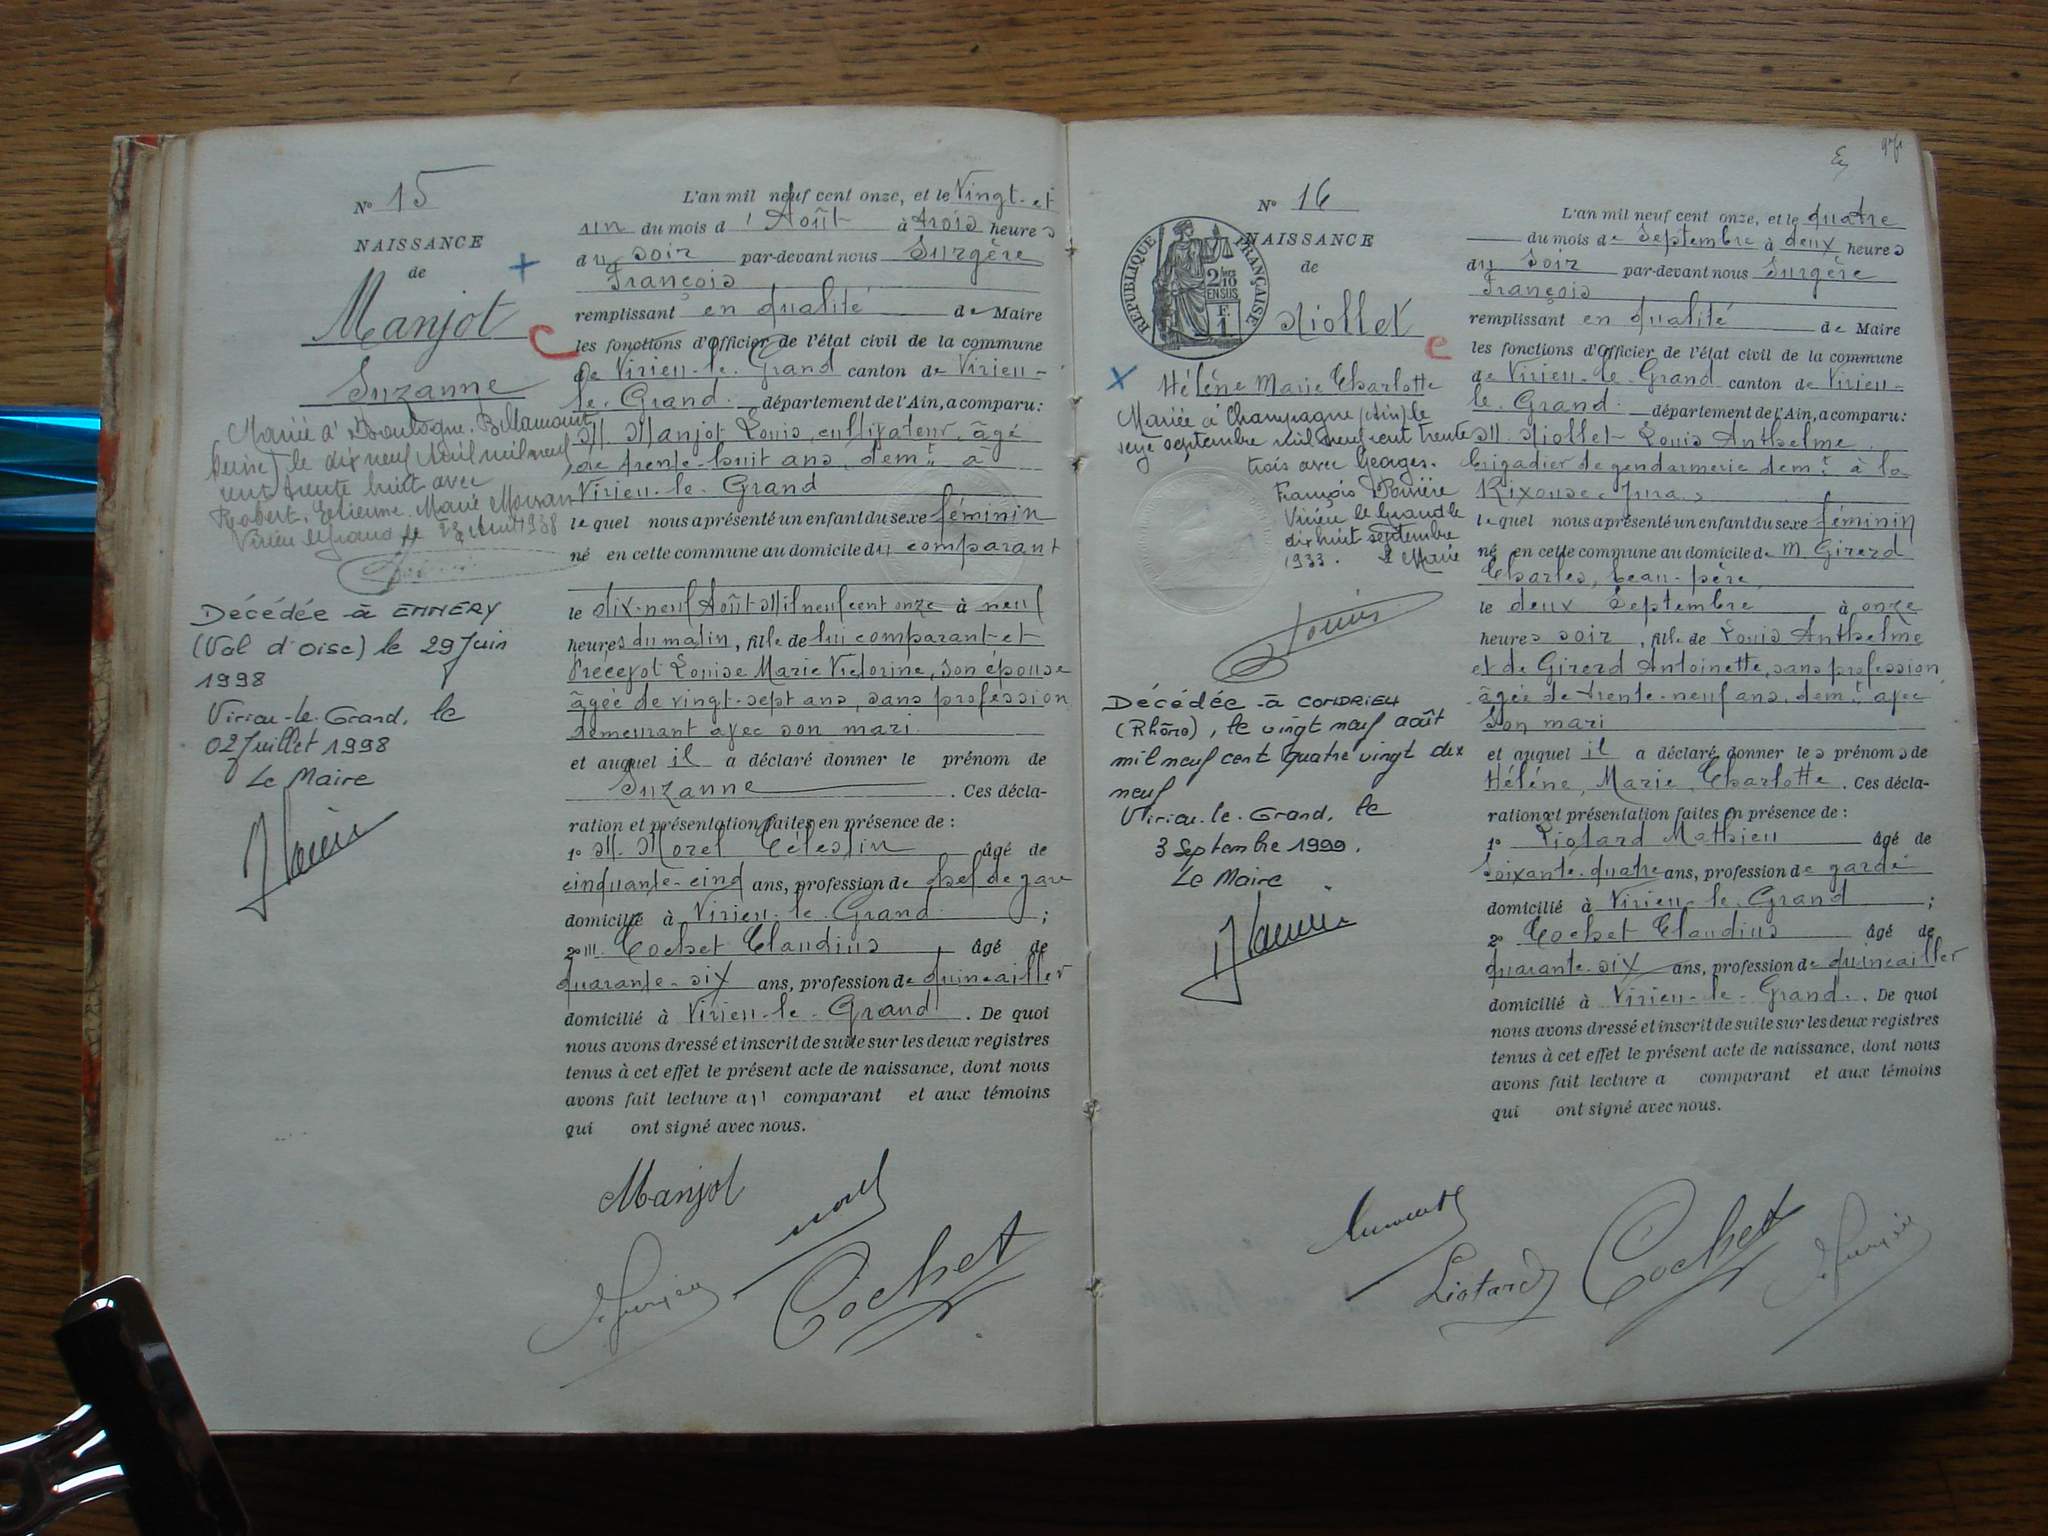 N° 15
NAISSANCE
de
Manjot
Suzanne
Mariée à Boulogne-Billancourt
Seine) le dix neuf Avril mil neuf
cent trente huit avec
Robert, Etienne Marie
Virieu le Grand le Avril 1938
Décédée à ENNERY
(Val d'Oise) le 29 Juin
1998
Virieu-le-Grand, le
02 Juillet 1998
Le Maire
L'an mil neuf cent onze, et le Vingt-et
un du mois d'Août à trois heures
du soir par-devant nous Surgère
François
remplissant en qualité de Maire
les fonctions d'Officier de l'état civil de la commune
de Virieu-le-Grand canton de Virieu-
le-Grand département de l'Ain, a comparu :
M. Manjot Louis, cultivateur, âgé
de trente-huit ans, demt à
Virieu-le-Grand
lequel nous a présenté un enfant du sexe féminin
né en cette commune au domicile du comparant
le dix-neuf Août Mil neuf cent onze à neuf
heures du matin, fille de lui comparant et
Louise Marie Victorine, son épouse
âgée de vingt-sept ans, sans profession
demeurant avec son mari
et auquel il a déclaré donner le prénom de
Suzanne . Ces décla-
ration et présentation faites en présence de :
1° M. Morel Célestin âgé de
cinquante-cinq ans, profession de chef de gare
domicilié à Virieu-le-Grand ;
2° M. Cochet Claudius âgé de
quarante-six ans, profession de quincailler
domicilié à Virieu-le-Grand . De quoi
nous avons dressé et inscrit de suite sur les deux registres
tenus à cet effet le présent acte de naissance, dont nous
avons fait lecture au comparant et aux témoins
qui ont signé avec nous.
Manjot
Morel
Cochet
N° 16
RÉPUBLIQUE FRANÇAISE
2/10
EN SUS
NAISSANCE
de
Hélène Marie Charlotte
Mariée à Champagne (Ain) le
seize septembre mil neuf cent trente
trois avec Georges.
François
Virieu le Grand le
dix huit septembre
1933. Le Maire
Décédée à CONDRIEU
(Rhône), le vingt neuf août
mil neuf cent quatre vingt dix
neuf
Virieu-le-Grand, le
3 Septembre 1999.
Le Maire
L'an mil neuf cent onze, et le quatre
du mois de Septembre à deux heures
du Soir par-devant nous Surgère
François
remplissant en qualité de Maire
les fonctions d'Officier de l'état civil de la commune
de Virieu-le-Grand canton de Virieu-
le-Grand département de l'Ain, a comparu :
M. Louis Anthelme
brigadier de gendarmerie demt à la
Rixouse, Jura,
lequel nous a présenté un enfant du sexe féminin
né en cette commune au domicile de M. Girerd
Charles, beau-père,
le deux Septembre à onze
heures soir , fille de Louis Anthelme
et de Girerd Antoinette, sans profession,
âgée de trente-neuf ans, demt avec
son mari
et auquel il a déclaré donner les prénoms de
Hélène, Marie, Charlotte . Ces décla-
ration et présentation faites en présence de :
1° Liotard Mathieu âgé de
soixante-quatre ans, profession de garde
domicilié à Virieu-le-Grand ;
2° Cochet Claudius âgé de
quarante-six ans, profession de quincailler
domicilié à Virieu-le-Grand . De quoi
nous avons dressé et inscrit de suite sur les deux registres
tenus à cet effet le présent acte de naissance, dont nous
avons fait lecture a comparant et aux témoins
qui ont signé avec nous.
Liotard
Cochet